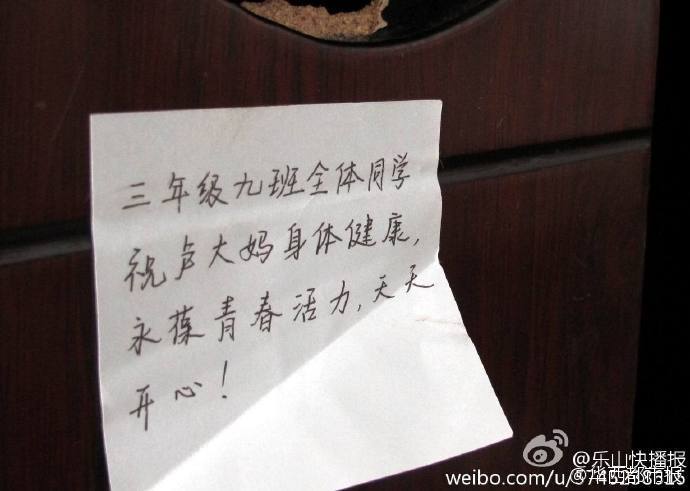 三年级九班全体同学
祝卢大妈身体健康,
永葆青春活力,天天
开心!
@乐山快播报
@华西都市报